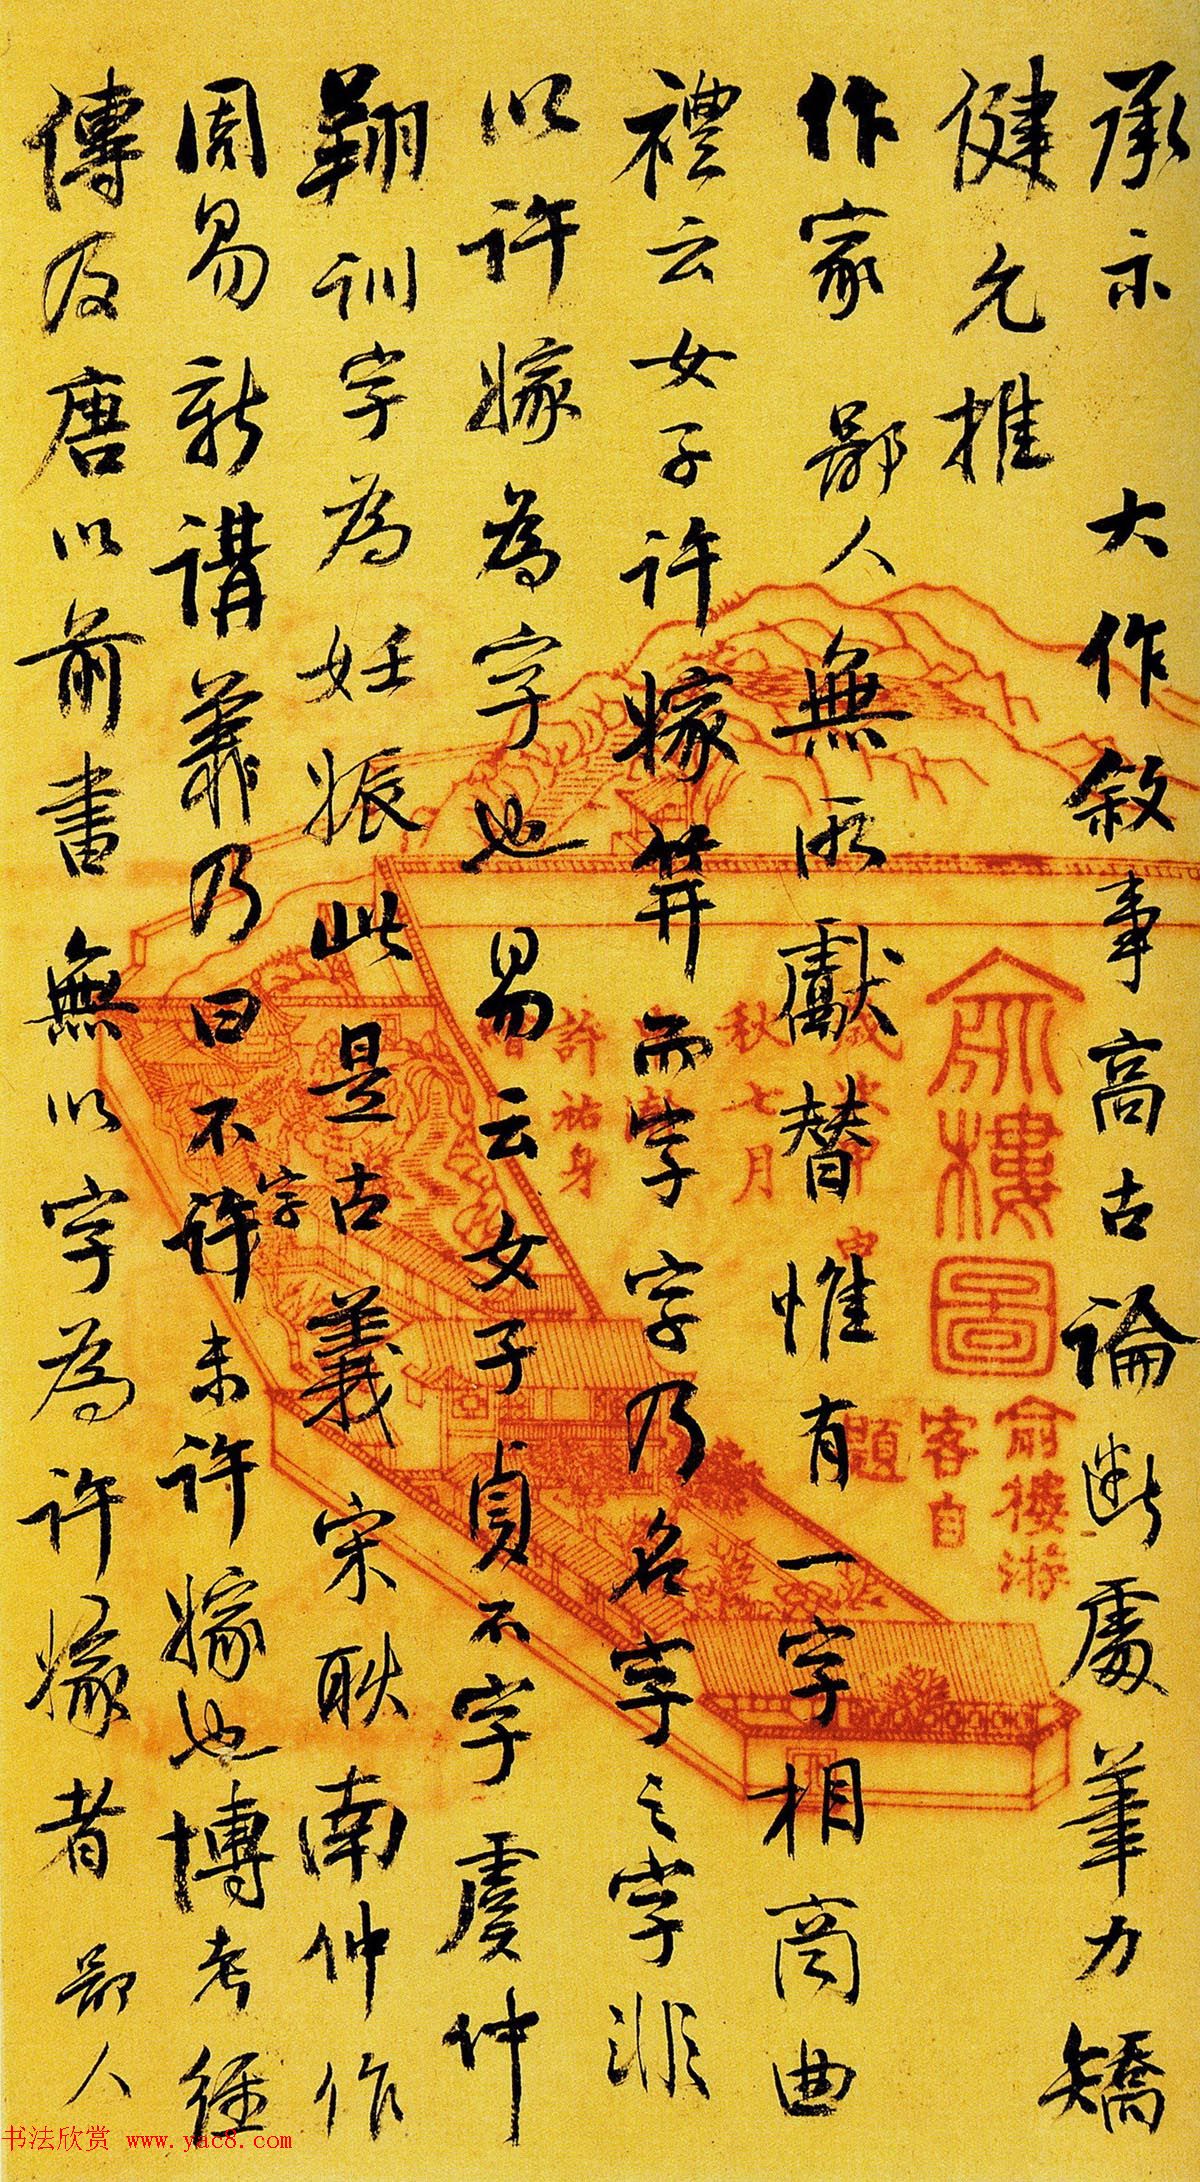 承示 大作敘事高古論斷處筆力矯
健允推
作家鄙人無所獻替惟有一字相商曲
禮云女子許嫁笄而字字乃名字之字非
以許嫁為字也易云女子貞不字虞仲
翔訓字為妊娠此是古義宋耿南仲作
周易新講義乃曰不許字未許嫁也博考經
傳及唐以前書無以字為許嫁者鄙人
俞樓圖
俞樓游
客自
題
秋七月
許祐身
书法欣赏 www.yac8.com